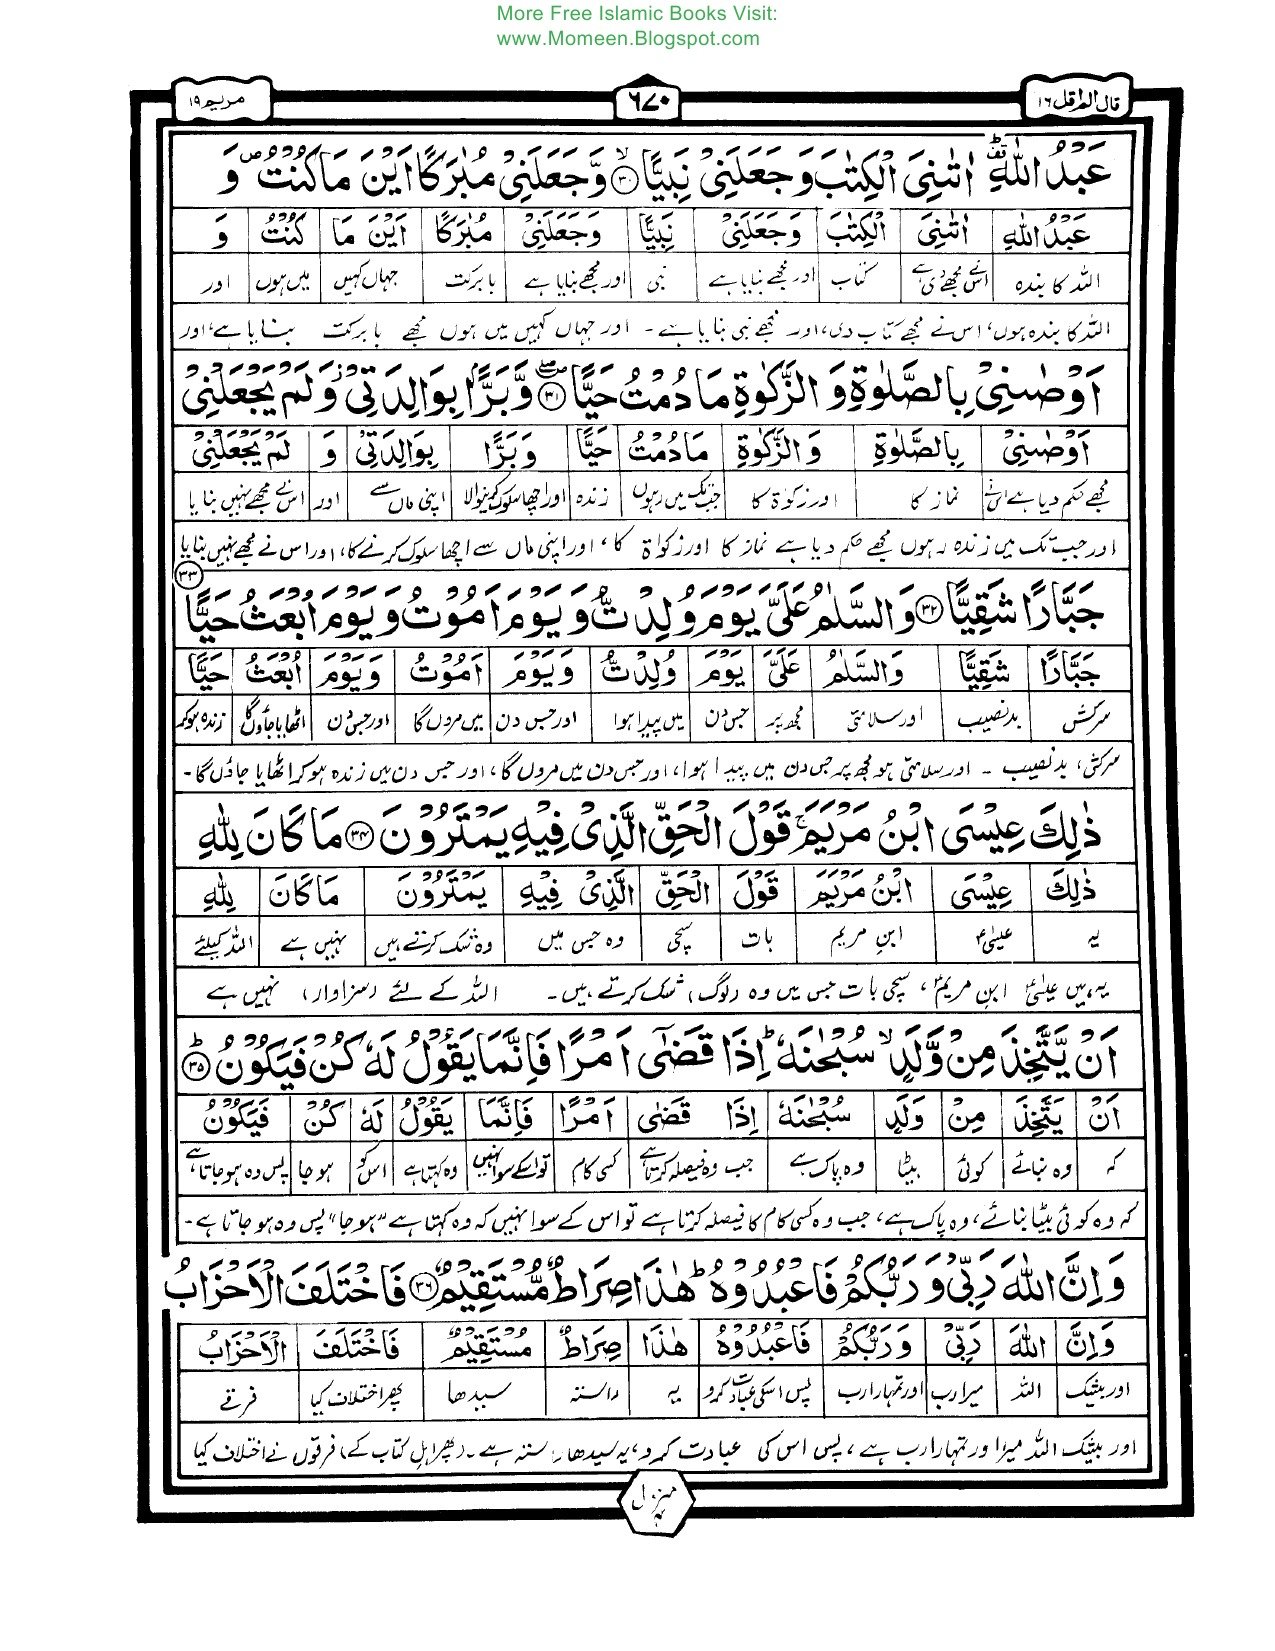 More Free Islamic Books Visit:
www.Momeen.Blogspot.com
قال الم اقل ١٦
٦٧٠
مریم ١٩
عَبْدُ اللّٰهِ ۗ اٰتٰىنِیَ الْكِتٰبَ وَجَعَلَنِیْ نَبِیًّا ۙ۳۰ وَّجَعَلَنِیْ مُبٰرَكًا اَیْنَ مَا كُنْتُ ۪ وَ
عَبْدُ اللّٰهِ اٰتٰىنِیَ الْكِتٰبَ وَجَعَلَنِیْ نَبِیًّا وَجَعَلَنِیْ مُبٰرَكًا اَیْنَ مَا كُنْتُ وَ
اللہ کا بندہ اس نے مجھے دی ہے کتاب اور مجھے بنایا ہے نبی اور مجھے بنایا ہے بابرکت جہاں کہیں میں ہوں اور
اللہ کا بندہ ہوں، اس نے مجھے کتاب دی، اور مجھے نبی بنایا ہے۔ اور جہاں کہیں میں ہوں مجھے بابرکت بنایا ہے، اور
اَوْصٰىنِیْ بِالصَّلٰوةِ وَ الزَّكٰوةِ مَا دُمْتُ حَیًّا ۳۱ وَّ بَرًّۢا بِوَالِدَتِیْ ؗ وَ لَمْ یَجْعَلْنِیْ
اَوْصٰىنِیْ بِالصَّلٰوةِ وَالزَّكٰوةِ مَا دُمْتُ حَیًّا وَبَرًّا بِوَالِدَتِیْ وَ لَمْ یَجْعَلْنِیْ
مجھے حکم دیا ہے اس نے نماز کا اور زکوۃ کا جب تک میں رہوں زندہ اور اچھا سلوک کرنیوالا اپنی ماں سے اور اس نے مجھے نہیں بنایا
اور جب تک میں زندہ رہوں مجھے حکم دیا ہے نماز کا اور زکواۃ کا، اور اپنی ماں سے اچھا سلوک کرنے کا، اور اس نے مجھے نہیں بنایا
جَبَّارًا شَقِیًّا ۳۲ وَالسَّلٰمُ عَلَیَّ یَوْمَ وُلِدْتُّ وَ یَوْمَ اَمُوْتُ وَ یَوْمَ اُبْعَثُ حَیًّا ۳۳
جَبَّارًا شَقِیًّا وَالسَّلٰمُ عَلَیَّ یَوْمَ وُلِدْتُّ وَ یَوْمَ اَمُوْتُ وَیَوْمَ اُبْعَثُ حَیًّا
سرکش بدنصیب اور سلامتی مجھ پر جس دن میں پیدا ہوا اور جس دن میں مروں گا اور جس دن اٹھایا جاؤں گا زندہ ہو کر
سرکش، بدنصیب ۔ اور سلامتی ہو مجھ پر جس دن میں پیدا ہوا، اور جس دن میں مروں گا، اور جس دن میں زندہ ہو کر اٹھایا جاؤں گا۔
ذٰلِكَ عِیْسَی ابْنُ مَرْیَمَ ۚ قَوْلَ الْحَقِّ الَّذِیْ فِیْهِ یَمْتَرُوْنَ ۳۴ مَا كَانَ لِلّٰهِ
ذٰلِكَ عِیْسَی ابْنُ مَرْیَمَ قَوْلَ الْحَقِّ الَّذِیْ فِیْهِ یَمْتَرُوْنَ مَا كَانَ لِلّٰهِ
یہ عیسیٰؑ ابنِ مریم بات سچی وہ جس میں وہ شک کرتے ہیں نہیں ہے اللہ کیلئے
یہ ہیں عیسیٰؑ ابنِ مریمؑ، سچی بات جس میں وہ (لوگ) شک کرتے ہیں۔ اللہ کے لئے (سزاوار) نہیں ہے
اَنْ یَّتَّخِذَ مِنْ وَّلَدٍ ۙ سُبْحٰنَهٗ ؕ اِذَا قَضٰۤی اَمْرًا فَاِنَّمَا یَقُوْلُ لَهٗ كُنْ فَیَكُوْنُ ؕ۳۵
اَنْ یَّتَّخِذَ مِنْ وَلَدٍ سُبْحٰنَهٗ اِذَا قَضٰی اَمْرًا فَاِنَّمَا یَقُوْلُ لَهٗ كُنْ فَیَكُوْنُ
کہ وہ بنائے کوئی بیٹا وہ پاک ہے جب وہ فیصلہ کرتا ہے کسی کام تو اسکے سوا نہیں وہ کہتا ہے اس کو ہو جا پس وہ ہو جاتا ہے
کہ وہ کوئی بیٹا بنائے، وہ پاک ہے، جب وہ کسی کام کا فیصلہ کرتا ہے تو اس کے سوا نہیں کہ وہ کہتا ہے "ہو جا" پس وہ ہو جاتا ہے۔
وَ اِنَّ اللّٰهَ رَبِّیْ وَ رَبُّكُمْ فَاعْبُدُوْهُ ؕ هٰذَا صِرَاطٌ مُّسْتَقِیْمٌ ۳۶ فَاخْتَلَفَ الْاَحْزَابُ
وَاِنَّ اللّٰهَ رَبِّیْ وَ رَبُّكُمْ فَاعْبُدُوْهُ هٰذَا صِرَاطٌ مُسْتَقِیْمٌ فَاخْتَلَفَ الْاَحْزَابُ
اور بیشک اللہ میرا رب اور تمہارا رب پس اسکی عبادت کرو یہ راستہ سیدھا پھر اختلاف کیا فرقے
اور بیشک اللہ میرا اور تمہارا رب ہے، پس اس کی عبادت کرو، یہ سیدھا راستہ ہے۔ (پھر اہل کتاب کے) فرقوں نے اختلاف کیا
منزل ۴